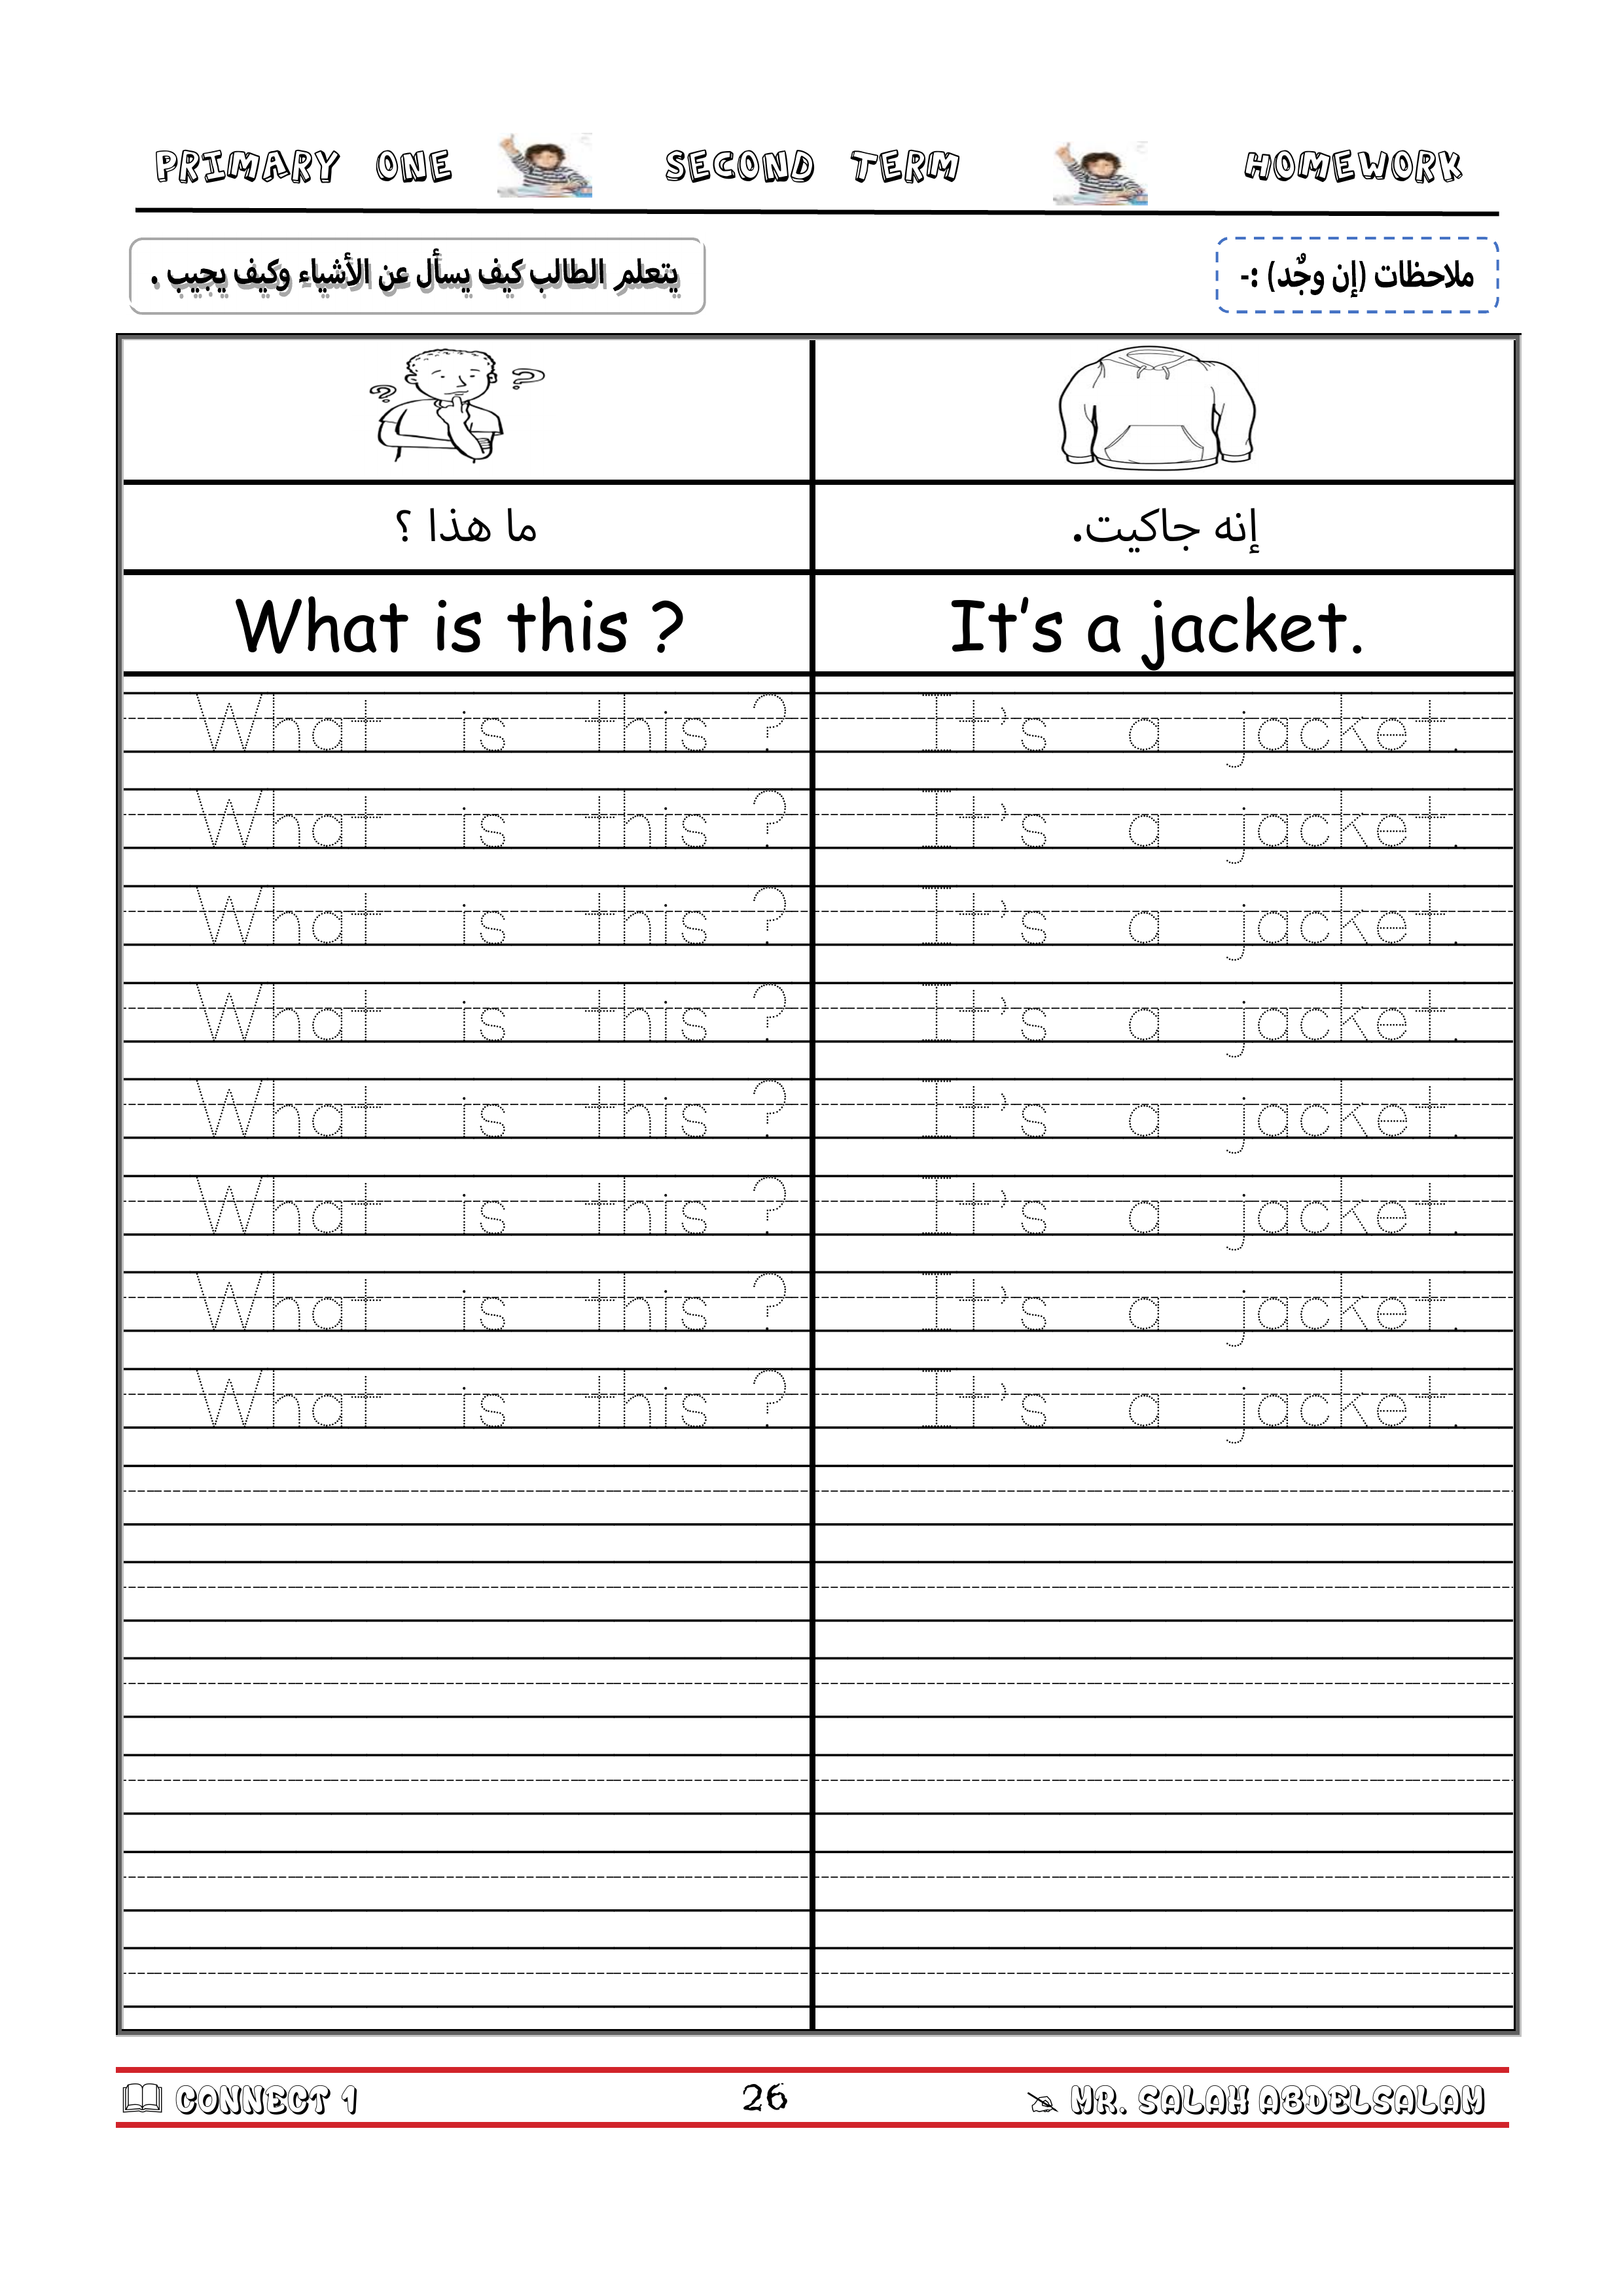 PRIMARY ONE SECOND TERM HOMEWORK
يتعلم الطالب كيف يسأل عن الأشياء وكيف يجيب .
ملاحظات (إن وجٌد) :-
? ?
ما هذا ؟ إنه جاكيت.
What is this ? It's a jacket.
What is this ? It's a jacket.
What is this ? It's a jacket.
What is this ? It's a jacket.
What is this ? It's a jacket.
What is this ? It's a jacket.
What is this ? It's a jacket.
What is this ? It's a jacket.
What is this ? It's a jacket.
CONNECT 1 26 MR. SALAH ABDELSALAM